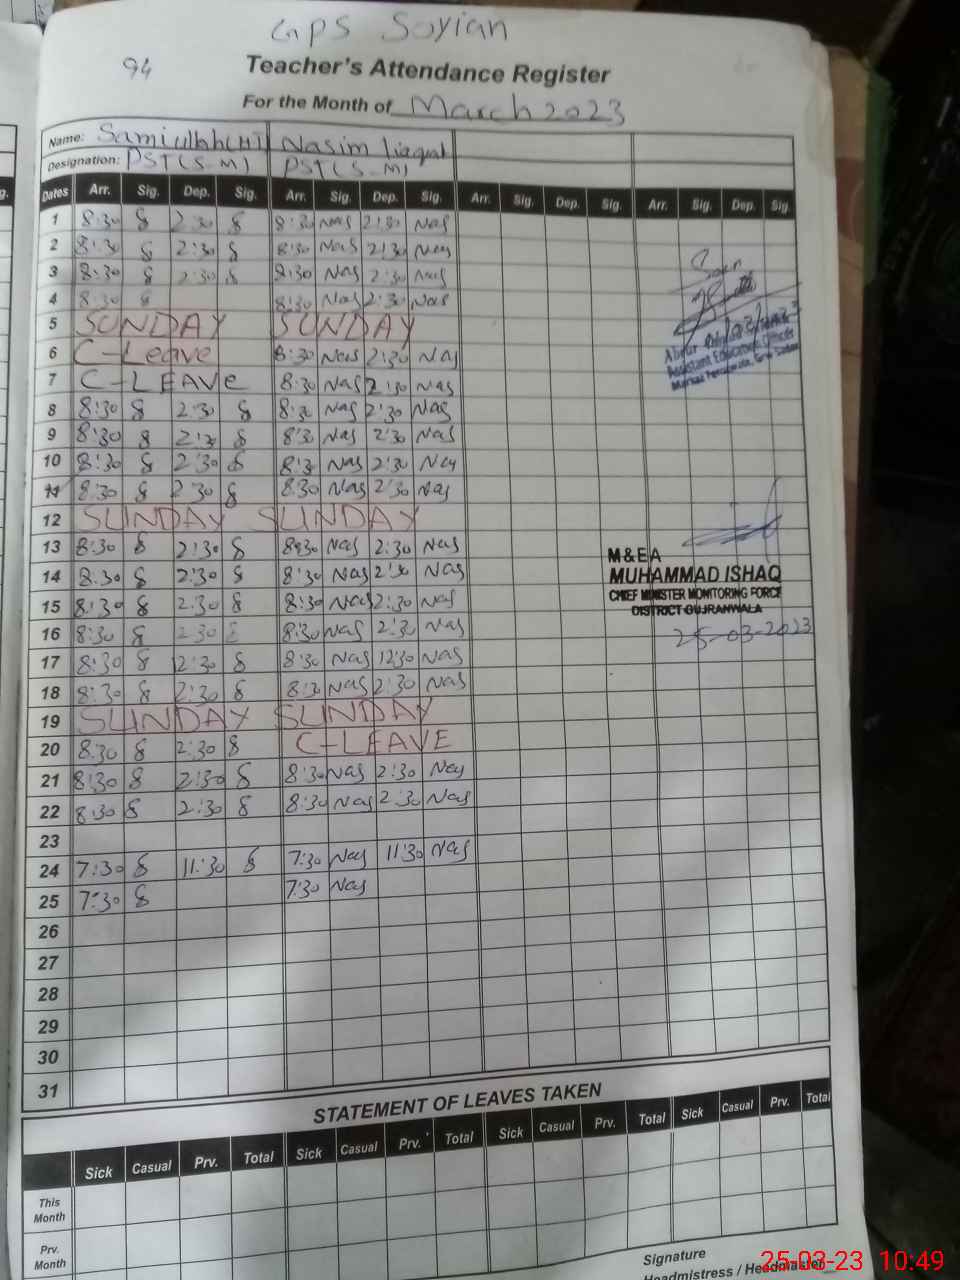 GPS Soyian
94
Teacher's Attendance Register
For the Month of March 2023
Name: Nasim liaqat
Designation: PST (S-M) PST (S-M)
Dates Arr. Sig. Dep. Sig. Arr. Sig. Dep. Sig. Arr. Sig. Dep. Sig. Arr. Sig. Dep. Sig.
1 8:30 8 2:30 8 8:30 Nas 2:30 Nas
2 8:30 8 2:30 8 8:30 Nas 2:30 Nas
3 8:30 8 2:30 8 8:30 Nas 2:30 Nas
4 8:30 8 8:30 Nas 2:30 Nas
5 SUNDAY SUNDAY
6 C-Leave 8:30 Nas 2:30 Nas
7 C-LEAVe 8:30 Nas 2:30 Nas
8 8:30 8 2:30 8 8:30 Nas 2:30 Nas
9 8:30 8 2:30 8 8:30 Nas 2:30 Nas
10 8:30 8 2:30 8 8:30 Nas 2:30 Nas
11 8:30 8 2:30 8 8:30 Nas 2:30 Nas
12 SUNDAY SUNDAY
13 8:30 8 2:30 8 8:30 Nas 2:30 Nas
14 8:30 8 2:30 8 8:30 Nas 2:30 Nas
15 8:30 8 2:30 8 8:30 Nas 2:30 Nas
16 8:30 8 2:30 8 8:30 Nas 2:30 Nas
17 8:30 8 12:30 8 8:30 Nas 12:30 Nas
18 8:30 8 2:30 8 8:30 Nas 2:30 Nas
19 SUNDAY SUNDAY
20 8:30 8 2:30 8 C-LEAVE
21 8:30 8 2:30 8 8:30 Nas 2:30 Nas
22 8:30 8 2:30 8 8:30 Nas 2:30 Nas
23
24 7:30 8 11:30 8 7:30 Nas 11:30 Nas
25 7:30 8 7:30 Nas
26
27
28
29
30
31
Seen
Assistant Education Officer
M&EA
MUHAMMAD ISHAQ
CHIEF MINISTER MONITORING FORCE
DISTRICT GUJRANWALA
25-03-2023
STATEMENT OF LEAVES TAKEN
Sick Casual Prv. Total Sick Casual Prv. Total Sick Casual Prv. Total Sick Casual Prv. Total
This Month
Prv. Month
Signature
Headmistress / Headmaster
25-03-23 10:49